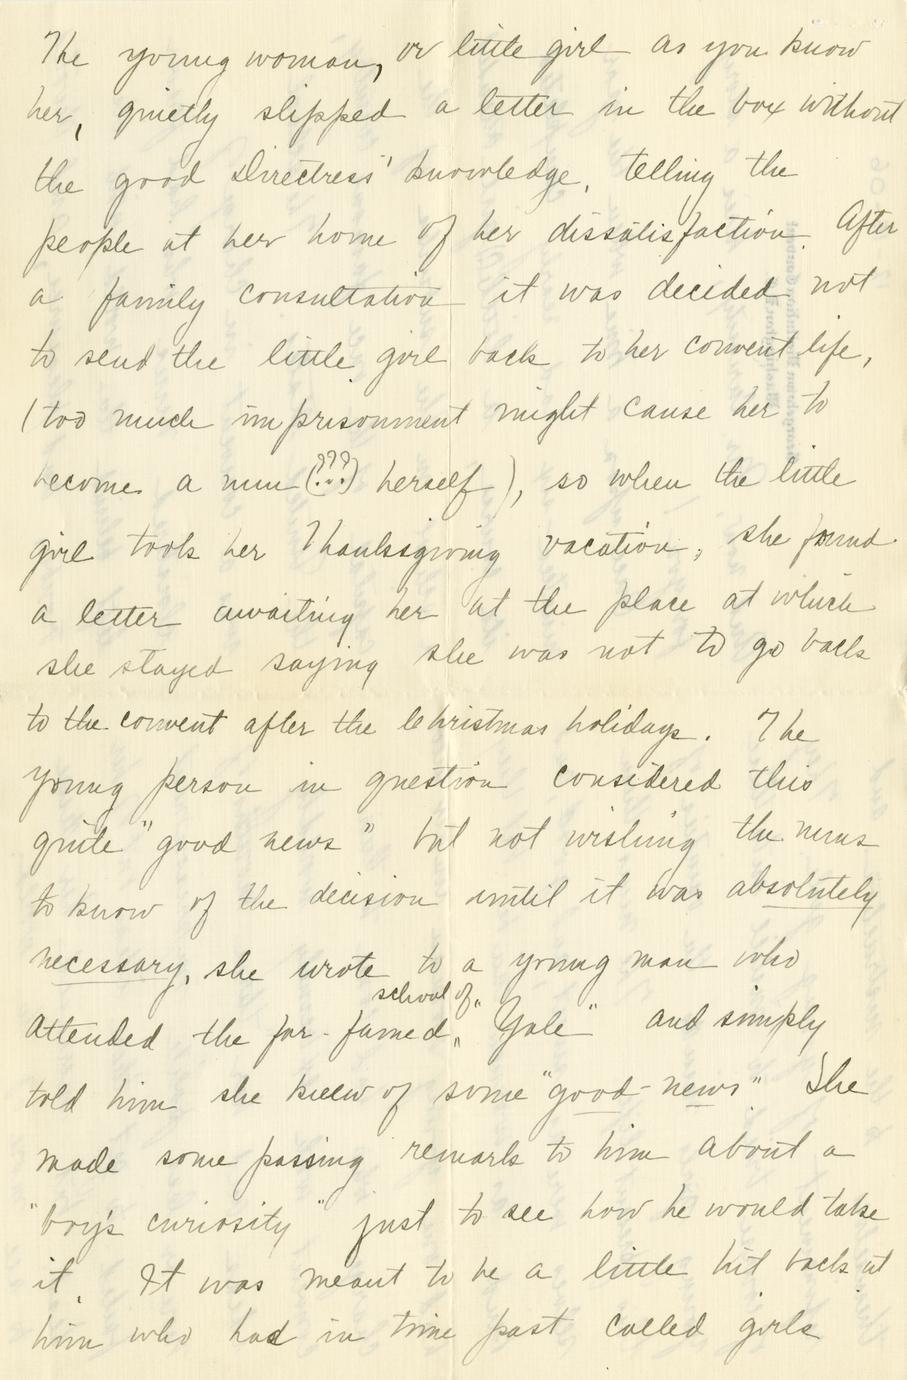 The young woman, or little girl as you know
her, quietly slipped a letter in the box without
the good Directress' knowledge, telling the
people at her home of her dissatisfaction. After
a family consultation it was decided not
to send the little girl back to her convent life,
(too much imprisonment might cause her to
become a nun (???) herself), so when the little
girl took her Thanksgiving vacation, she found
a letter awaiting her at the place at which
she stayed saying she was not to go back
to the convent after the Christmas holidays. The
young person in question considered this
quite "good news" but not wishing the nuns
to know of the decision until it was absolutely
necessary, she wrote to a young man who
school of
attended the far-famed, "Yale" and simply
told him she knew of some "good-news" She
made some passing remark to him about a
"boy's curiosity" just to see how he would take
it. It was meant to be a little hit back at
him who had in time past called girls